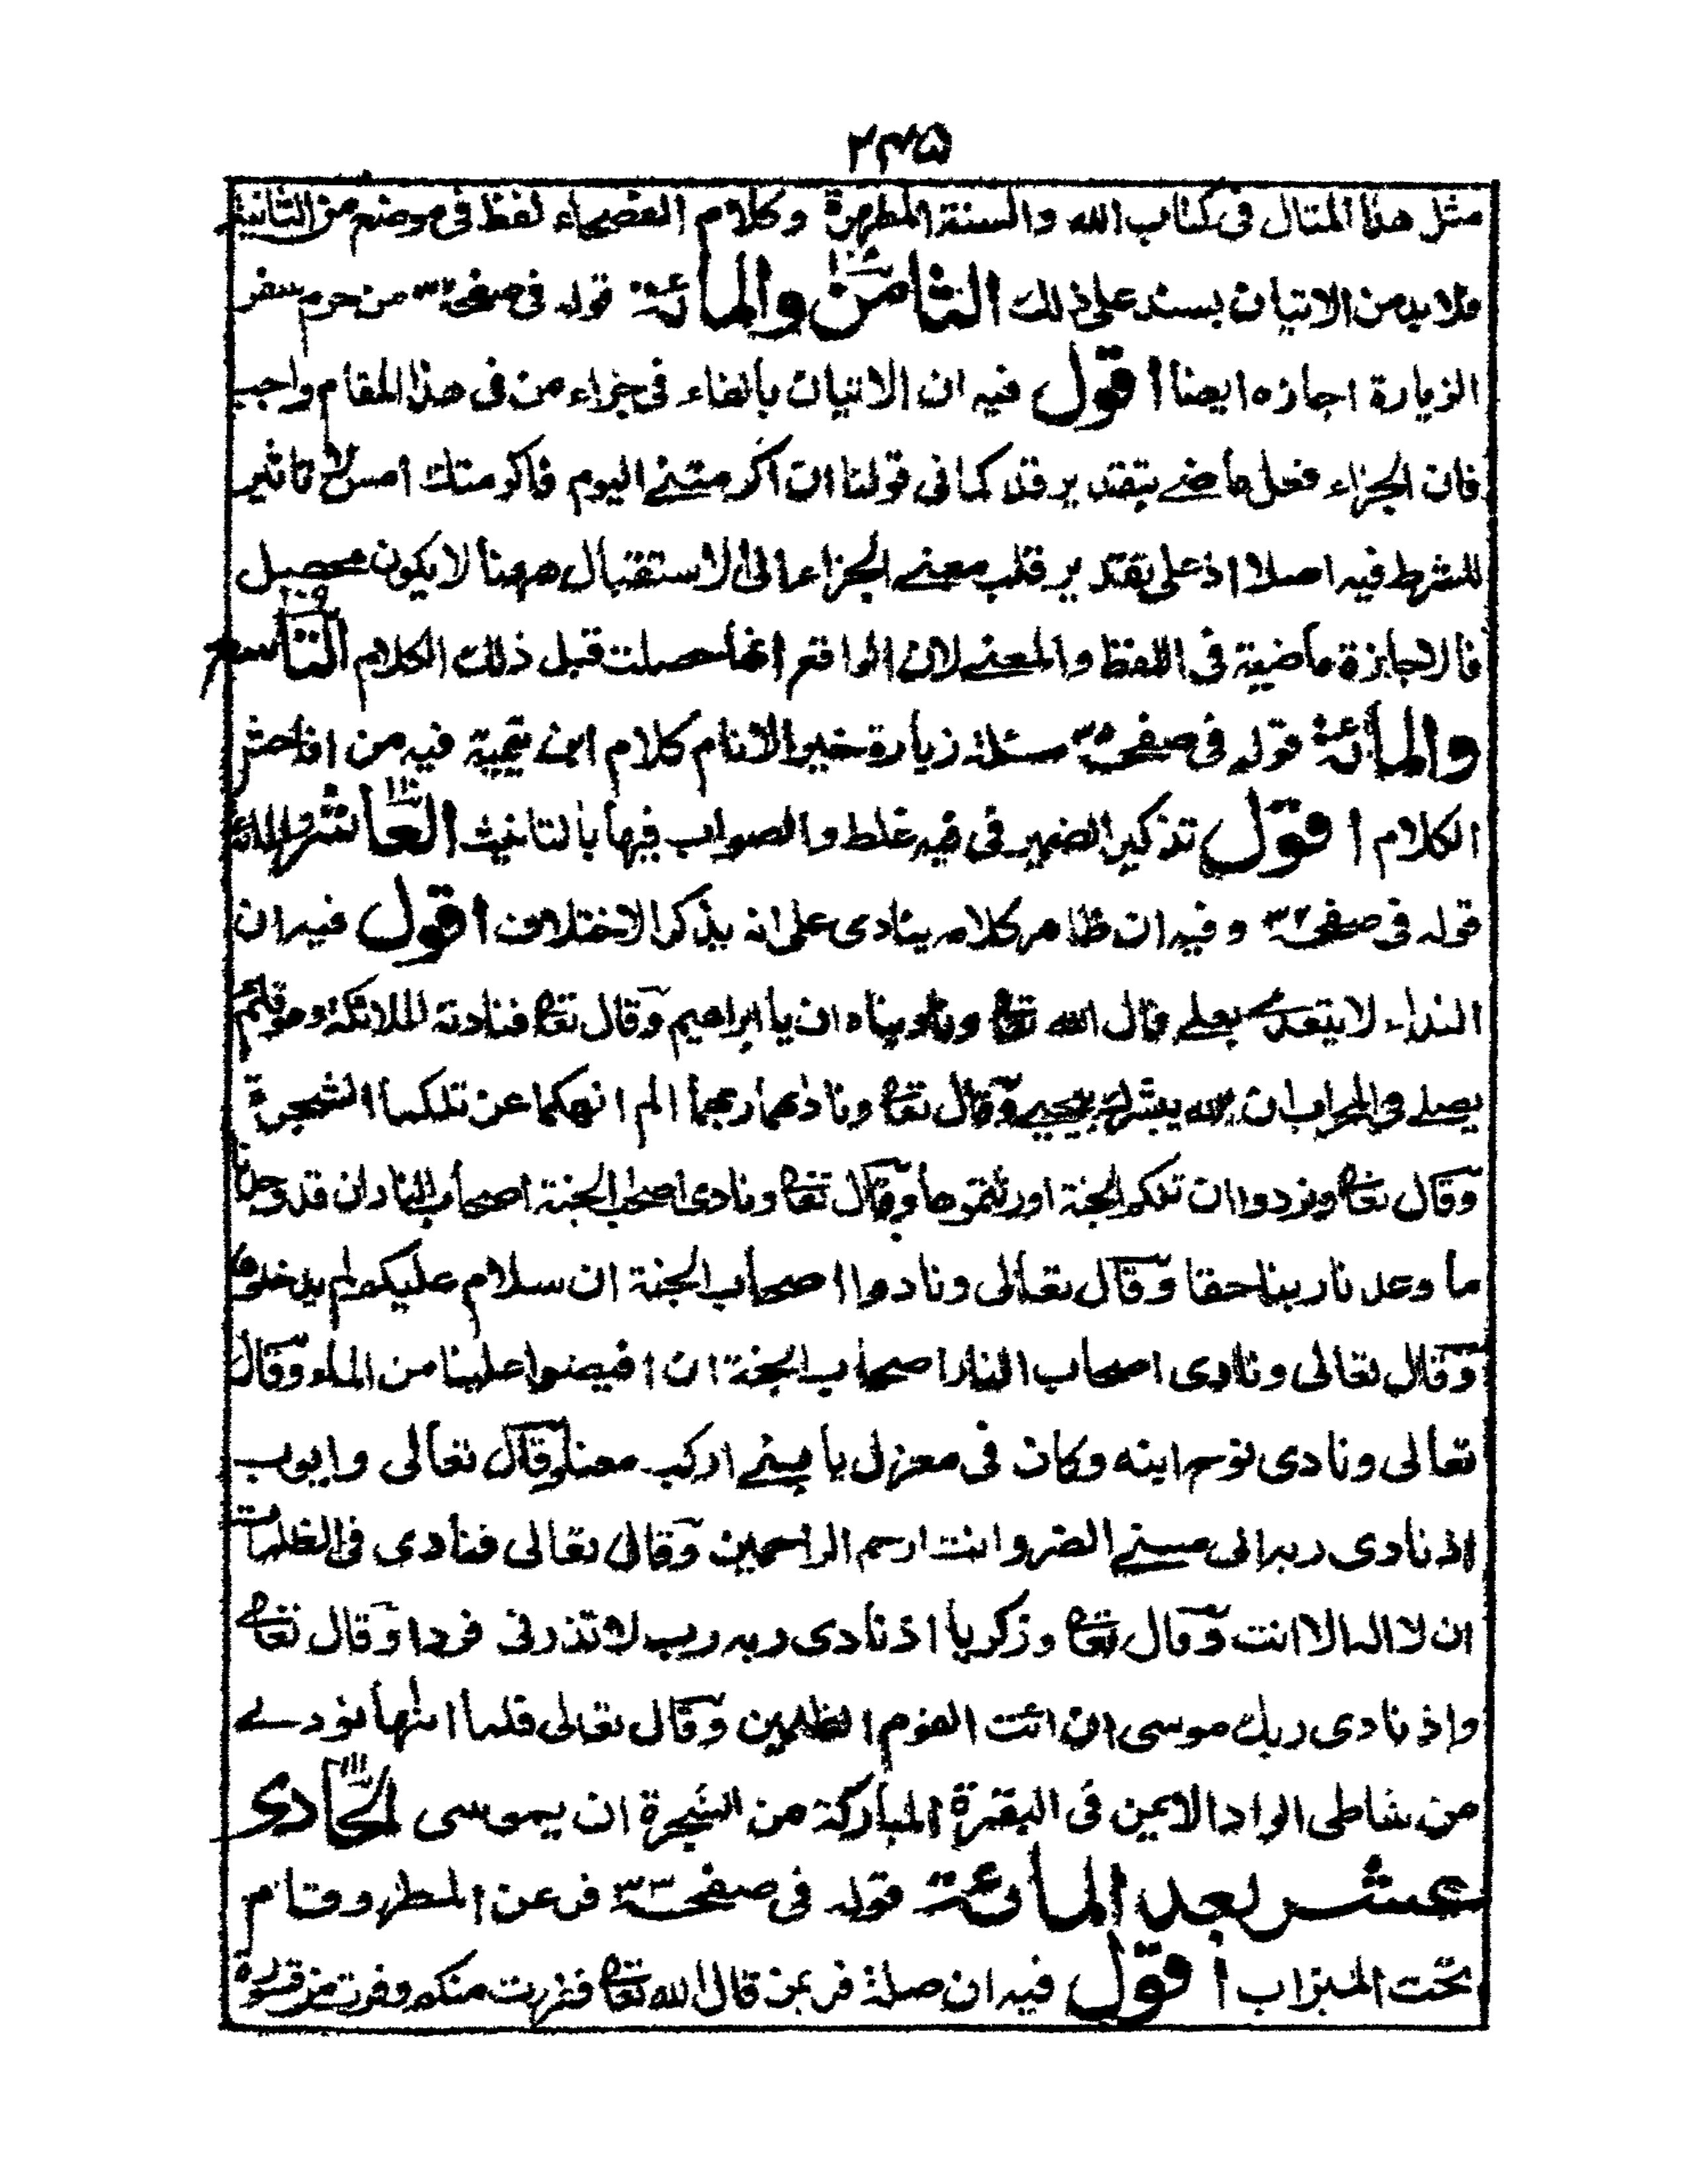 ٢٣٥
مثل هذا المثال فى كتاب الله والسنة المطهرة وكلام الفصحاء لفظ فى موضع من الثانية
فلا بد من الاتيان بسند على ذلك الثامن والمائة قوله فى صفحة من حرم سفر
الزيارة اجازه ايضا اقول فيه ان الاتيان بالفاء فى جزاء من فى هذا المقام واجب
فان الجزاء فعل ماضے بتقدير قد كما فى قولنا ان اكرمتنے اليوم فاكرمتك امس لا تاثير
للشرط فيه اصلا اذ على تقدير قلب معنے الجزاء الى الاستقبال ههنا لا يكون محصل
فالاجازة ماضية فى اللفظ والمعنے لان الواقع انها حصلت قبل ذلك الكلام التاسع
والمائة قوله فى صفحة مسئلة زيارة خير الانام كلام ابن تيمية فيه من افاحش
الكلام اقول تذكير الضمير فى فيه غلط والصواب فيها بالتانيث العاشر والمائة
قوله فى صفحة وفيه ان ظاهر كلامه ينادى على انه يذكر الاختلاف اقول فيه ان
النداء لا يتعدى بعلى قال الله تعا وناديناه ان يا ابراهيم وقال تعا فنادته الملائكة وهو قائم
يصلے فى المحراب ان الله يبشرك بيحيے وقال تعا وناداهما ربهما الم انهكما عن تلكما الشجرة
وقال تعا ونودوا ان تلكم الجنة اورثتموها وقال تعا ونادى اصحاب الجنة اصحاب النار ان قد وجدنا
ما وعدنا ربنا حقا وقال تعالى ونادوا اصحاب الجنة ان سلام عليكم لم يدخلوها
وقال تعالى ونادى اصحاب النار اصحاب الجنة ان افيضوا علينا من الماء وقال
تعالى ونادى نوح ابنه وكان فى معزل يا بنے اركب معنا وقال تعالى وايوب
اذ نادى ربه انى مسنے الضر وانت ارحم الراحمين وقال تعالى فنادى فى الظلمات
ان لا اله الا انت وقال تعا وزكريا اذ نادى ربه رب لا تذرنى فردا وقال تعا
واذ نادى ربك موسى ان ائت القوم الظلمين وقال تعالى فلما اتٰها نودے
من شاطى الواد الايمن فى البقعة المباركة من الشجرة ان يموسى الحادى
عشر بعد المائة قوله فى صفحة فر عن المطر وقام
تحت الميزاب اقول فيه ان صلة فر بمن قال الله تعا ففررت منكم وفرت من قسورة